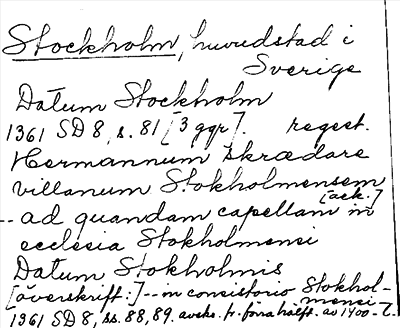 Stockholm, huvudstad i
Sverige
Datum Stockholm
1361 SD 8, s. 81 [3 ggr]. regest.
Hermannum skrædare
villanum Stokholmensem
[ack.]
-- ad quandam capellam in
ecclesia Stokholmensi
Datum Stokholmis
[överskrift:] -- in consistorio Stokhol-
mensi -
1361 SD 8, ss. 88, 89. avskr. fr. förra hälft. av 1400-t.